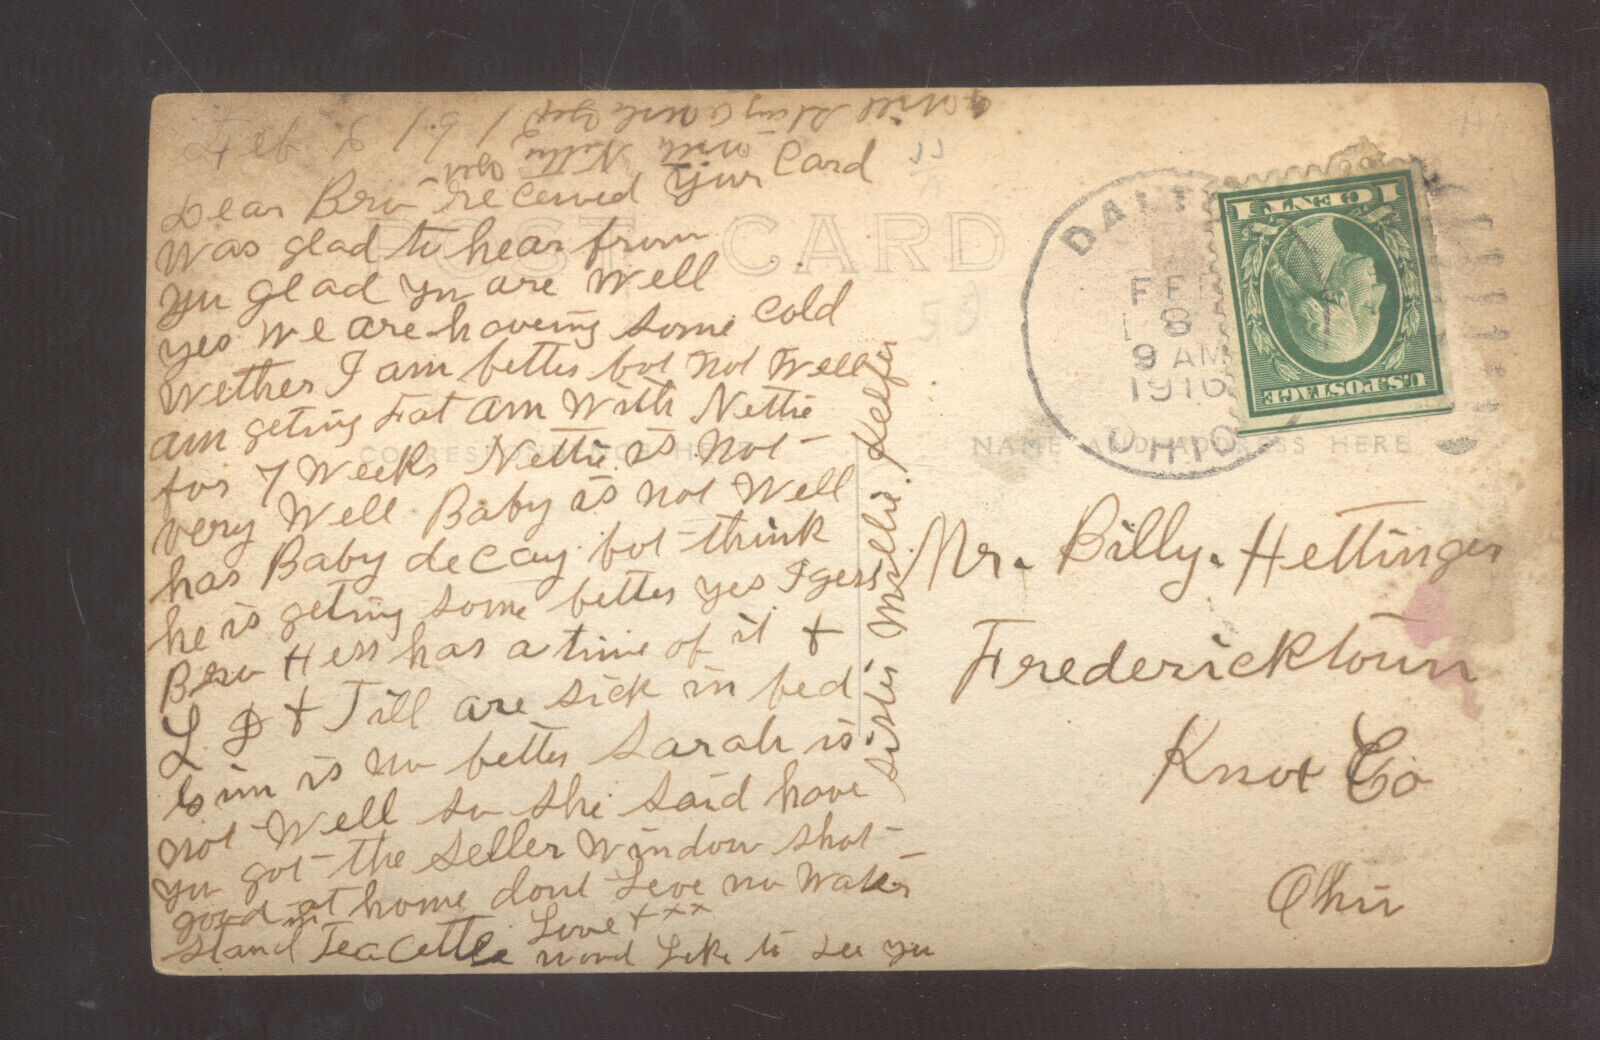 Feb 8 / 6. /
I Will Stay a while yet
With Nettie
Dear Bro received your Card
Was glad to hear from
yu glad yu are Well
yes We are having some cold
Wether I am better bot not Well
am geting Fat am With Nettie
for 7 Weeks Nettie is not
very Well. Baby is not Well
has Baby decay bot think
he is geting some better yes I gess
Bro Hess has a time of it +
L D + Till are sick in bed
is no better Sarah is
not Well so she said have
yu got the Seller Window shot
good at home dont Leve no Water
in
stand Tea Cettle Love + x x
woud Like to see yu
Sister Mollie. Kelfer
POST CARD
CORRESPONDENCE HERE
NAME AND ADDRESS HERE
DALTON
FEB
8
9 AM
1916
OHIO
1 CENT 1
U.S. POSTAGE
Mr. Billy. Hettinger
Fredericktown
Knox Co
Ohio